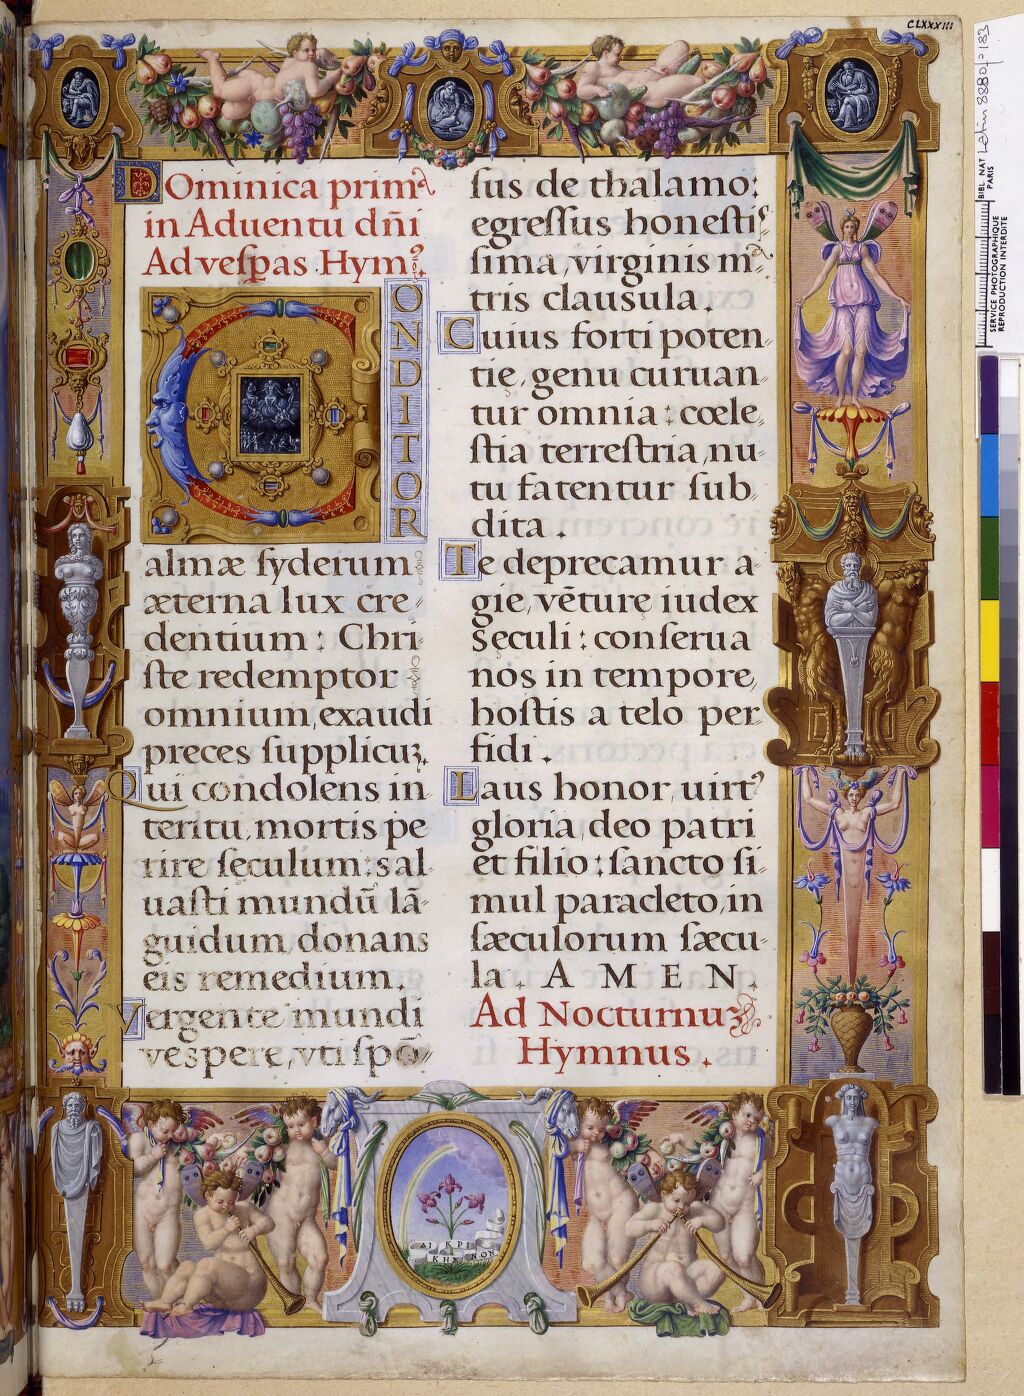 CLXXXIII
Dominica prim
in Aduentu dñi
Ad vesꝑas Hym⁹.
CONDITOR
almæ ſyderum
æterna lux cre-
dentium : Chri-
ſte redemptor
omnium, exaudi
preces ſupplicuꝫ.
Qui condolens in
teritu, mortis pe
rire ſęculum : sal
uaſti mundū lā-
guidum, donans
eis remedium.
Vergente mundi
veſpere, vti ſpō-
sus de thalamo:
egreſſus honeſti
ſima, virginis m
tris clauſula.
Cuius forti poten-
tię, genu curuan-
tur omnia : cœle-
ſtia terreſtria, nu-
tu fatentur ſub-
dita.
Te deprecamur a-
gie, vēture iudex
sęculi : conſerua
nos in tempore,
hoſtis a telo per-
fidi.
Laus honor, uirt⁹
gloria, deo patri
et filio : ſancto ſi-
mul paracleto, in
ſæculorum ſæcu-
la. AMEN.
Ad Nocturnuꝫ
Hymnus.
ΔΙ ΚΡΙ
ΝΟΝ
BIBL. NAT
PARIS
Latin 8880 f° 183
SERVICE PHOTOGRAPHIQUE
REPRODUCTION INTERDITE